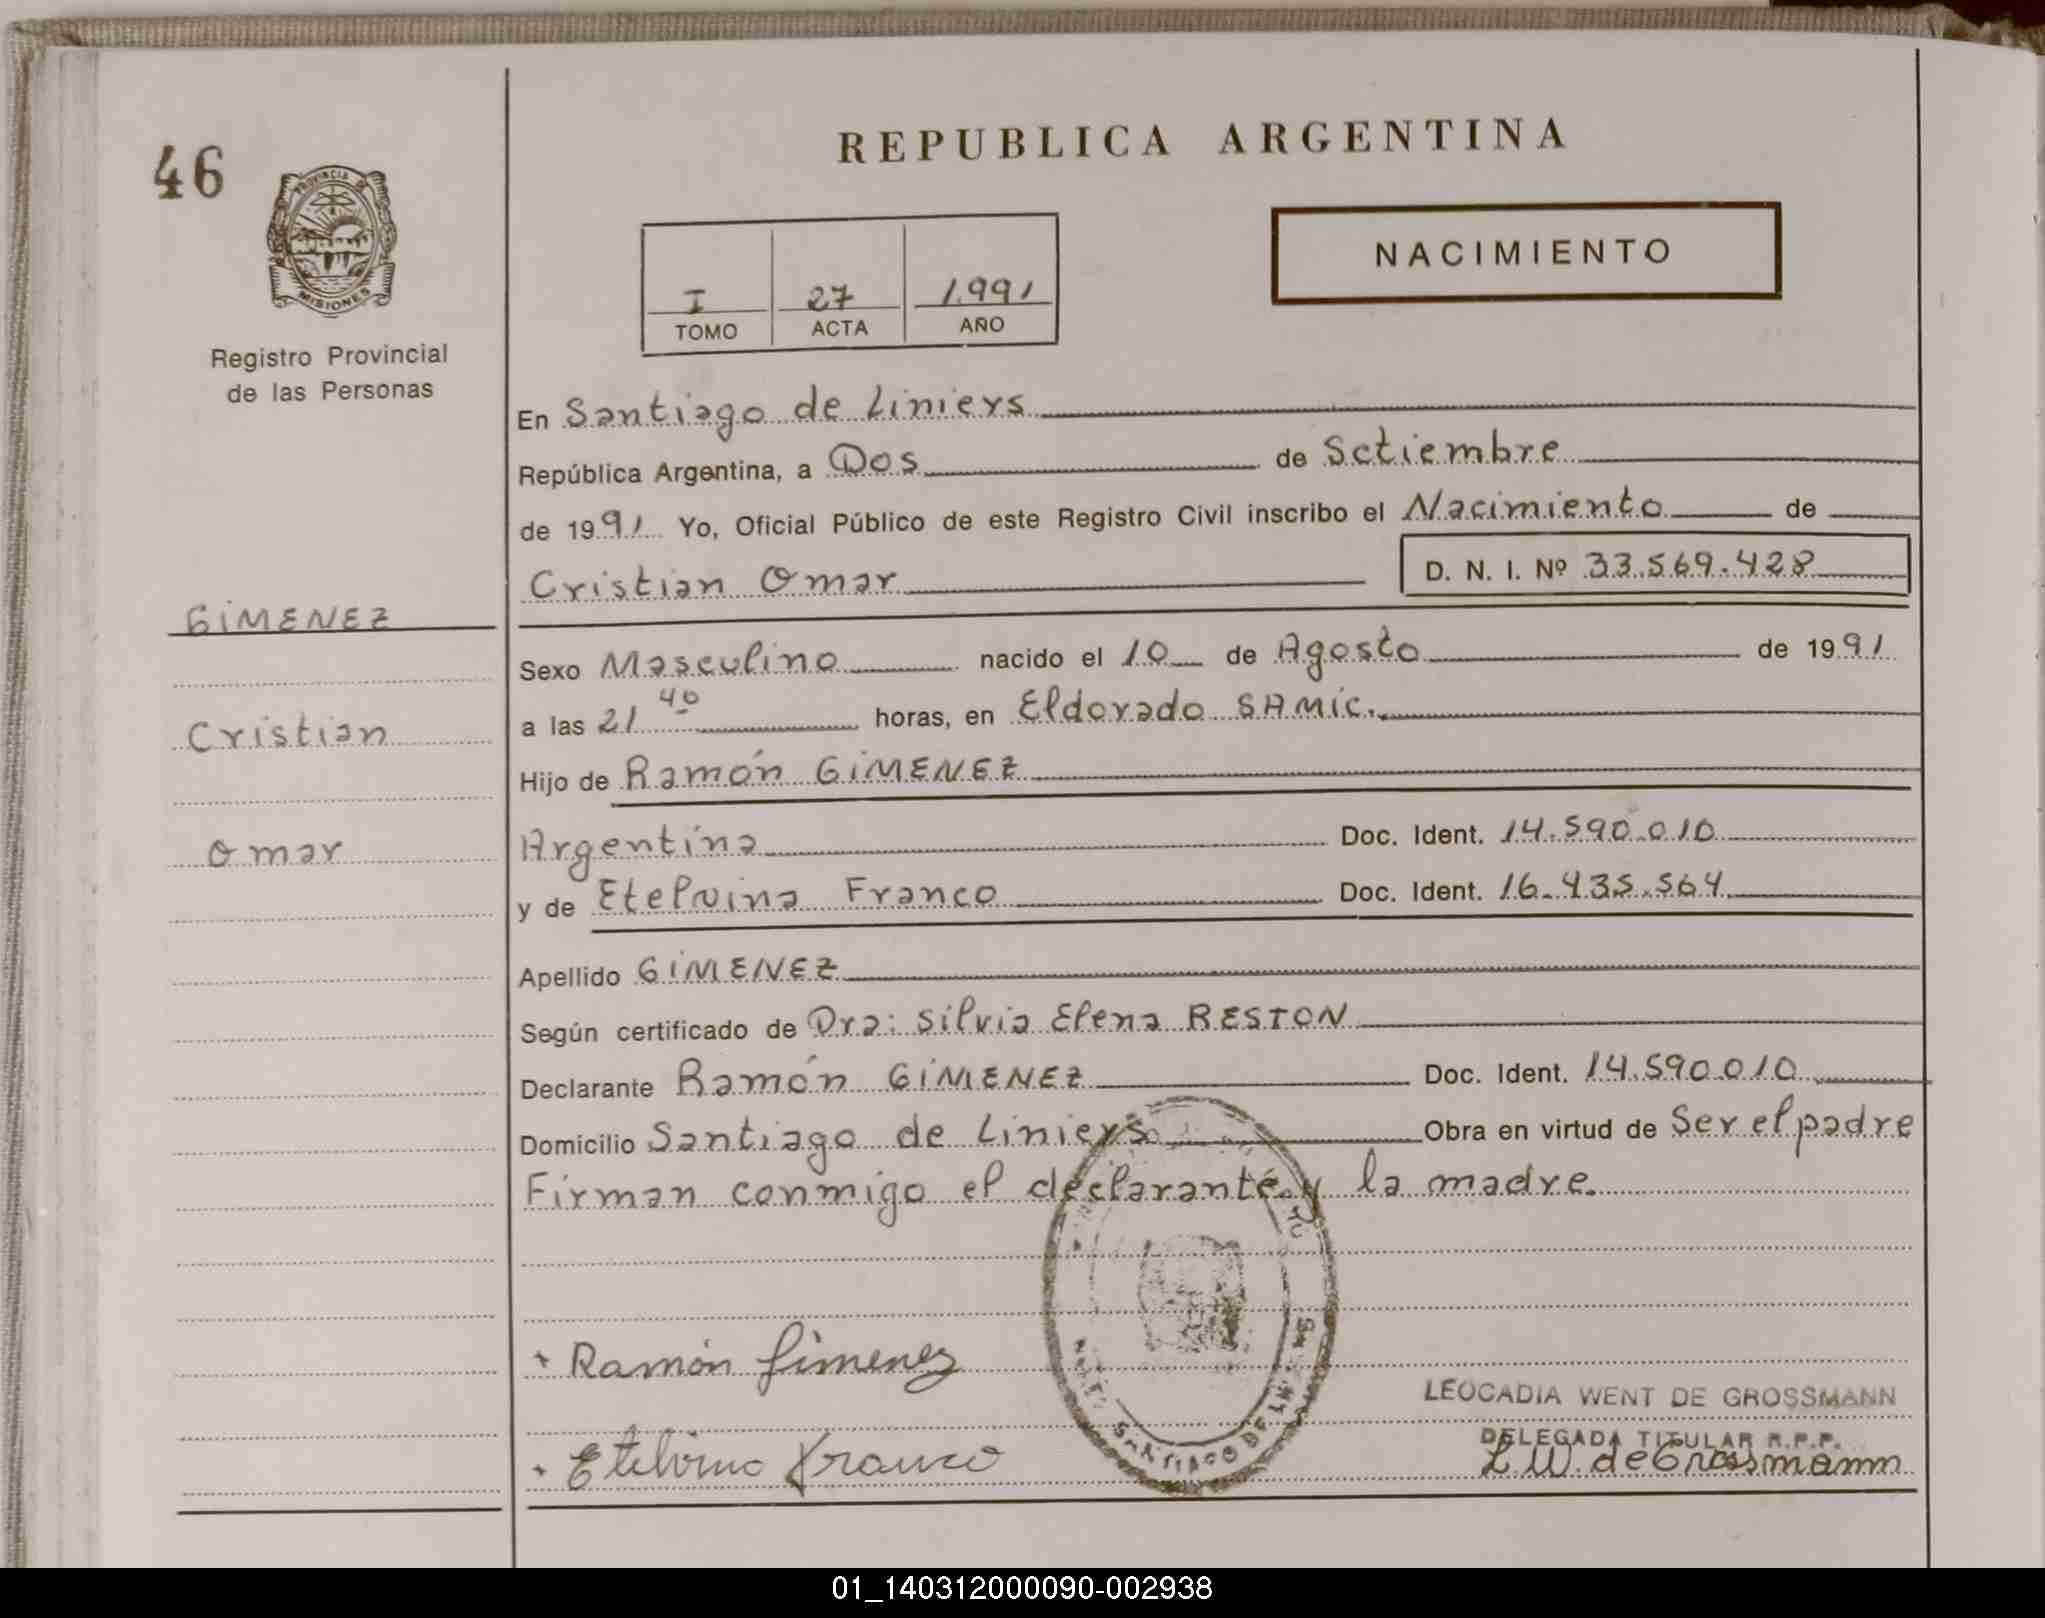 46
REPUBLICA ARGENTINA
PROVINCIA DE
MISIONES
Registro Provincial
de las Personas
I 27 1.991
TOMO ACTA AÑO
NACIMIENTO
En Santiago de Liniers
República Argentina, a Dos de Sctiembre
de 1991 Yo, Oficial Público de este Registro Civil inscribo el Nacimiento de
Cristian Omar D. N. I. Nº 33.569.428
GIMENEZ
Sexo Masculino nacido el 10 de Agosto de 1991
Cristian
a las 21 40 horas, en Eldorado SAMic.
Hijo de Ramón GIMENEZ
Omar
Argentina Doc. Ident. 14.590.010
y de Etelvina Franco Doc. Ident. 16.435.564
Apellido GIMENEZ
Según certificado de Dra: Silvia Elena RESTON
Declarante Ramón GIMENEZ Doc. Ident. 14.590.010
Domicilio Santiago de Liniers Obra en virtud de Ser el padre
Firman conmigo el declarante y la madre.
+ Ramón Gimenez
LEOCADIA WENT DE GROSSMANN
DELEGADA TITULAR R.P.P.
Etelvina Franco
L W. de Grossmann
SANTIAGO DE
01_140312000090-002938